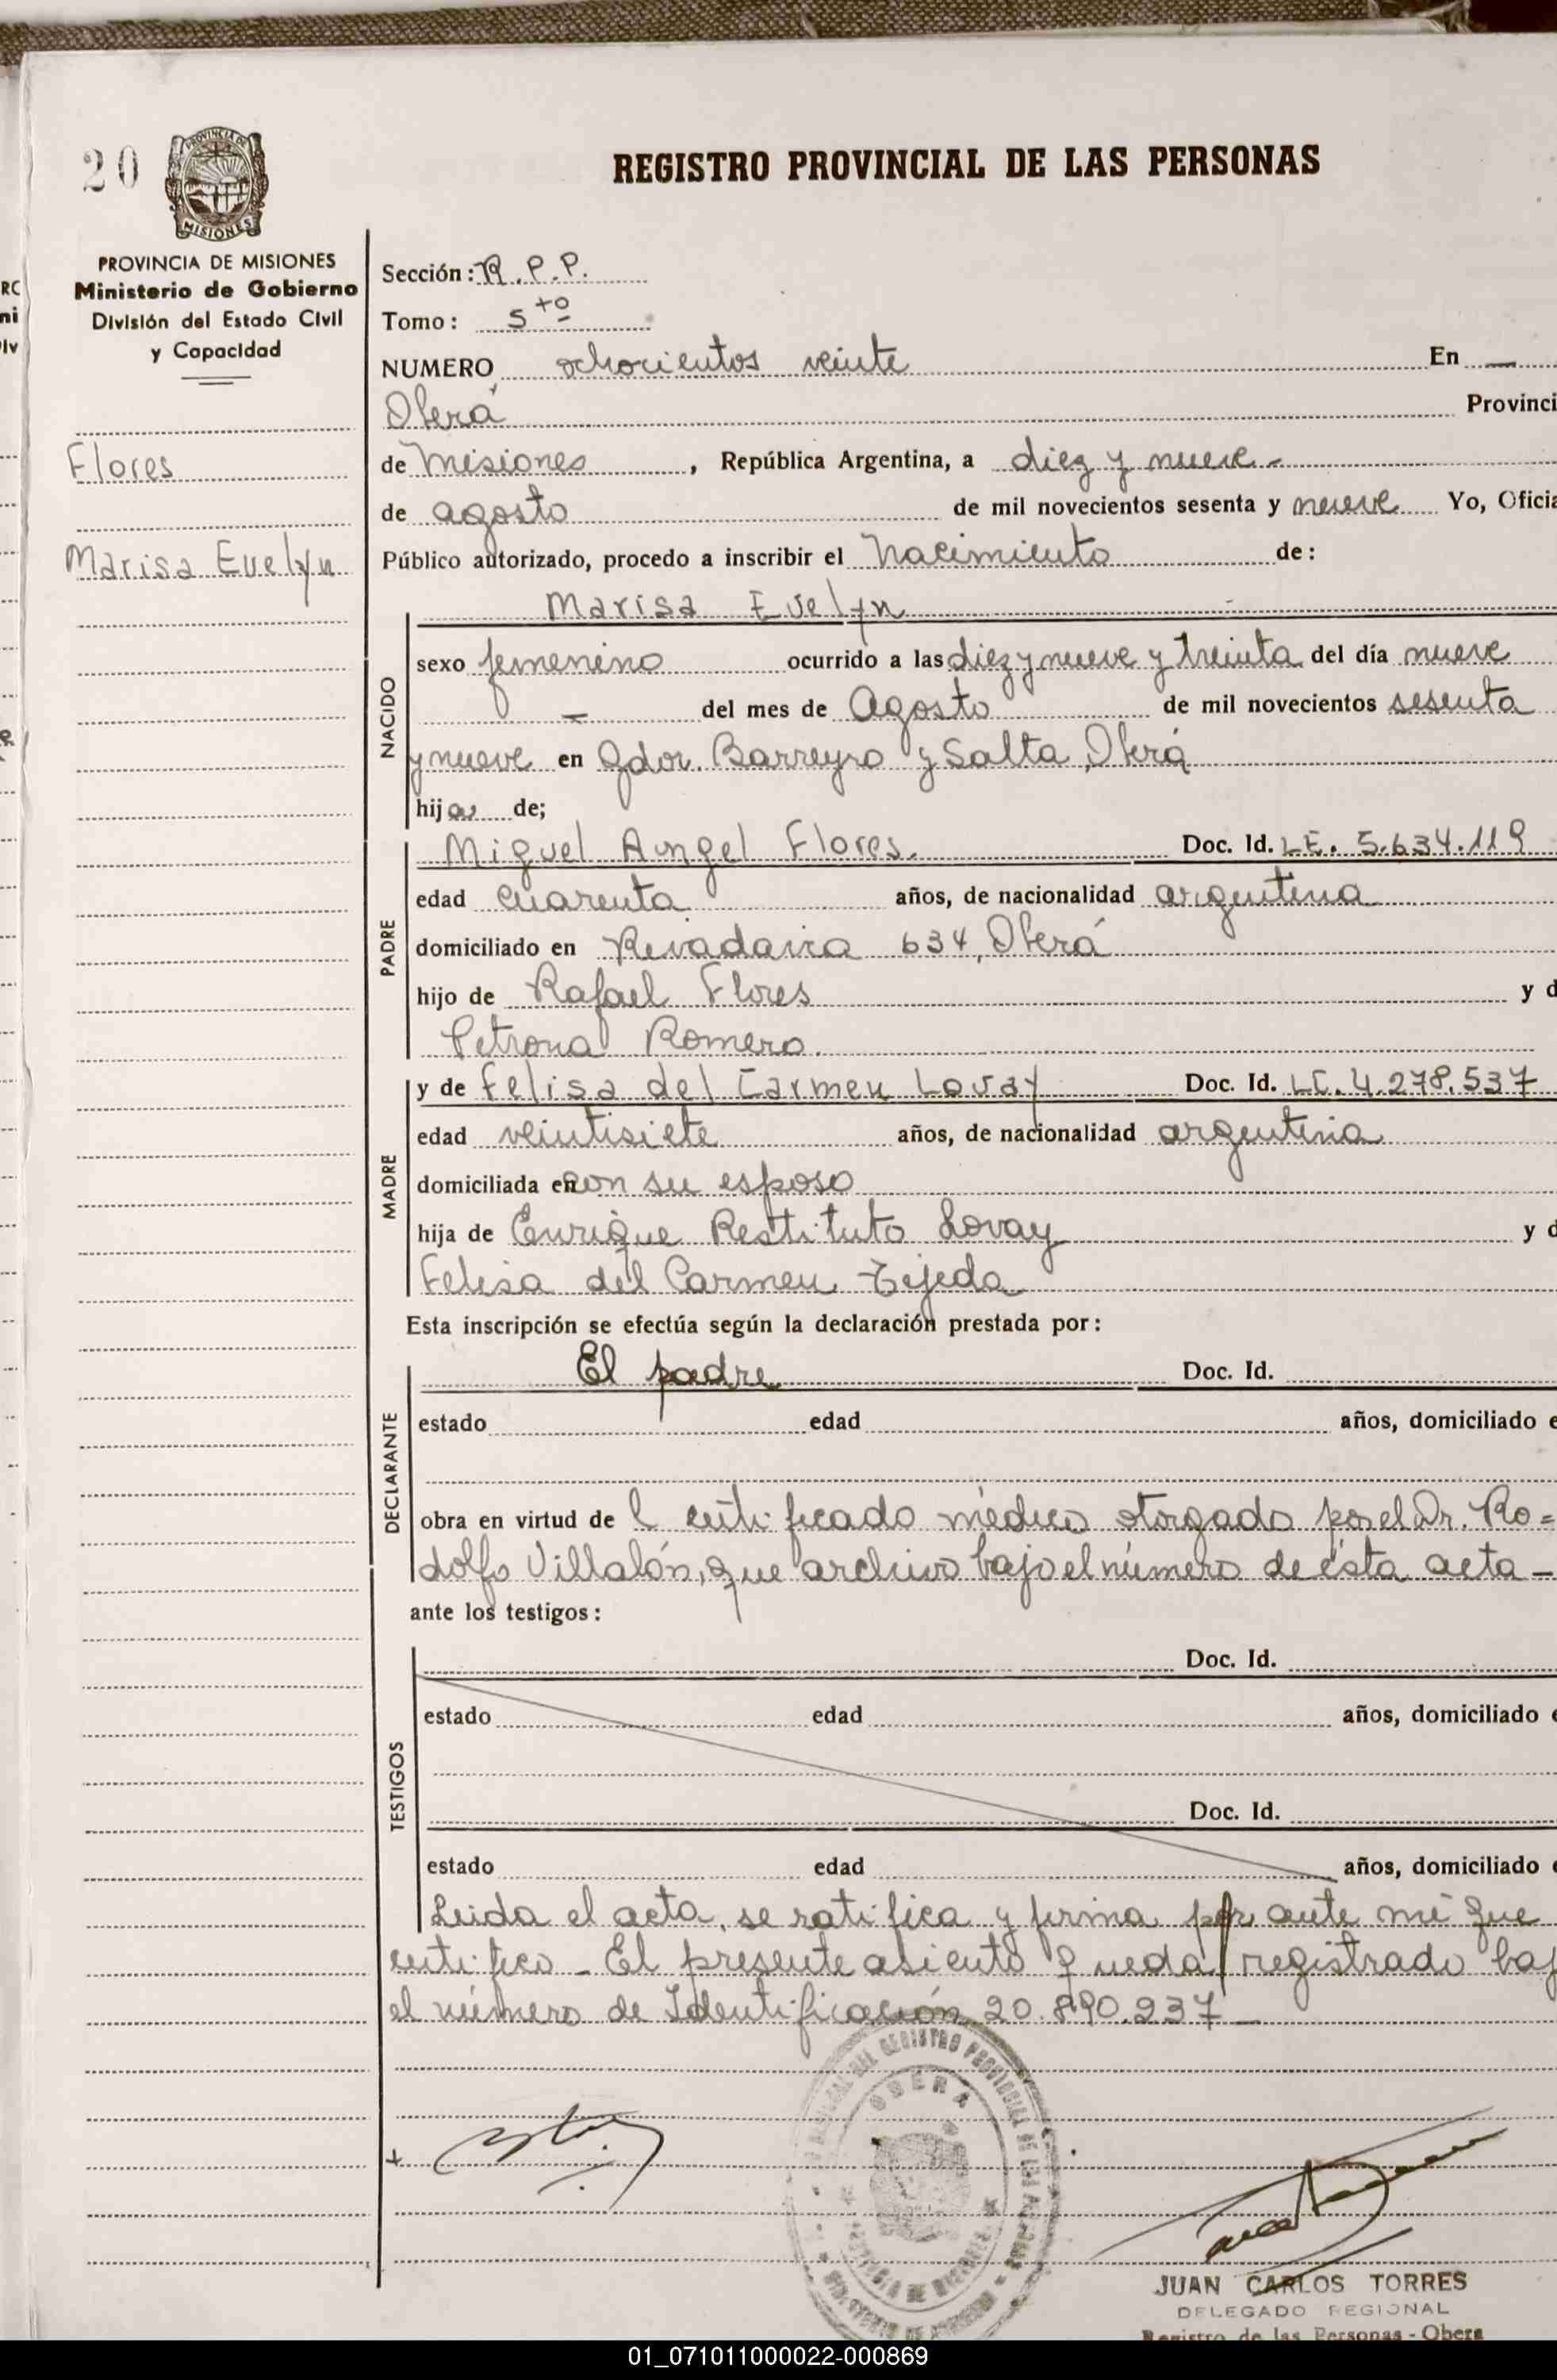 20
PROVINCIA DE MISIONES
Ministerio de Gobierno
División del Estado Civil
y Capacidad
Flores
Marisa Evelyn
REGISTRO PROVINCIAL DE LAS PERSONAS
Sección: R.P.P.
Tomo: 5to
NUMERO ochocientos veinte En —
Oberá Provinci
de Misiones, República Argentina, a diez y nueve -
de agosto de mil novecientos sesenta y nueve Yo, Oficia
Público autorizado, procedo a inscribir el Nacimiento de:
NACIDO
Marisa Evelyn
sexo femenino ocurrido a las diez y nueve y treinta del día nueve
— del mes de Agosto de mil novecientos sesenta
y nueve en Gdor. Barreyro y Salta, Oberá
hija de;
PADRE
Miguel Angel Flores. Doc. Id. L.E. 5.634.119
edad cuarenta años, de nacionalidad argentina
domiciliado en Rivadavia 634, Oberá
hijo de Rafael Flores y d
Petrona Romero.
MADRE
y de Felisa del Carmen Lovay Doc. Id. L.C. 4.278.537
edad veintisiete años, de nacionalidad argentina
domiciliada en con su esposo
hija de Enrique Restituto Lovay y d
Felisa del Carmen Tejeda
Esta inscripción se efectúa según la declaración prestada por:
DECLARANTE
El padre Doc. Id.
estado edad años, domiciliado e
obra en virtud de l certificado médico otorgado por el Dr. Ro=
dolfo Villalón, que archivo bajo el número de ésta acta -
ante los testigos:
TESTIGOS
Doc. Id.
estado edad años, domiciliado e
Doc. Id.
estado edad años, domiciliado e
Leida el acta, se ratifica y firma por ante mi que
certifico - El presente asiento queda registrado baj
el número de Identificación 20.890.237 -
OBERA
JUAN CARLOS TORRES
DELEGADO REGIONAL
Registro de las Personas - Obera
01_071011000022-000869